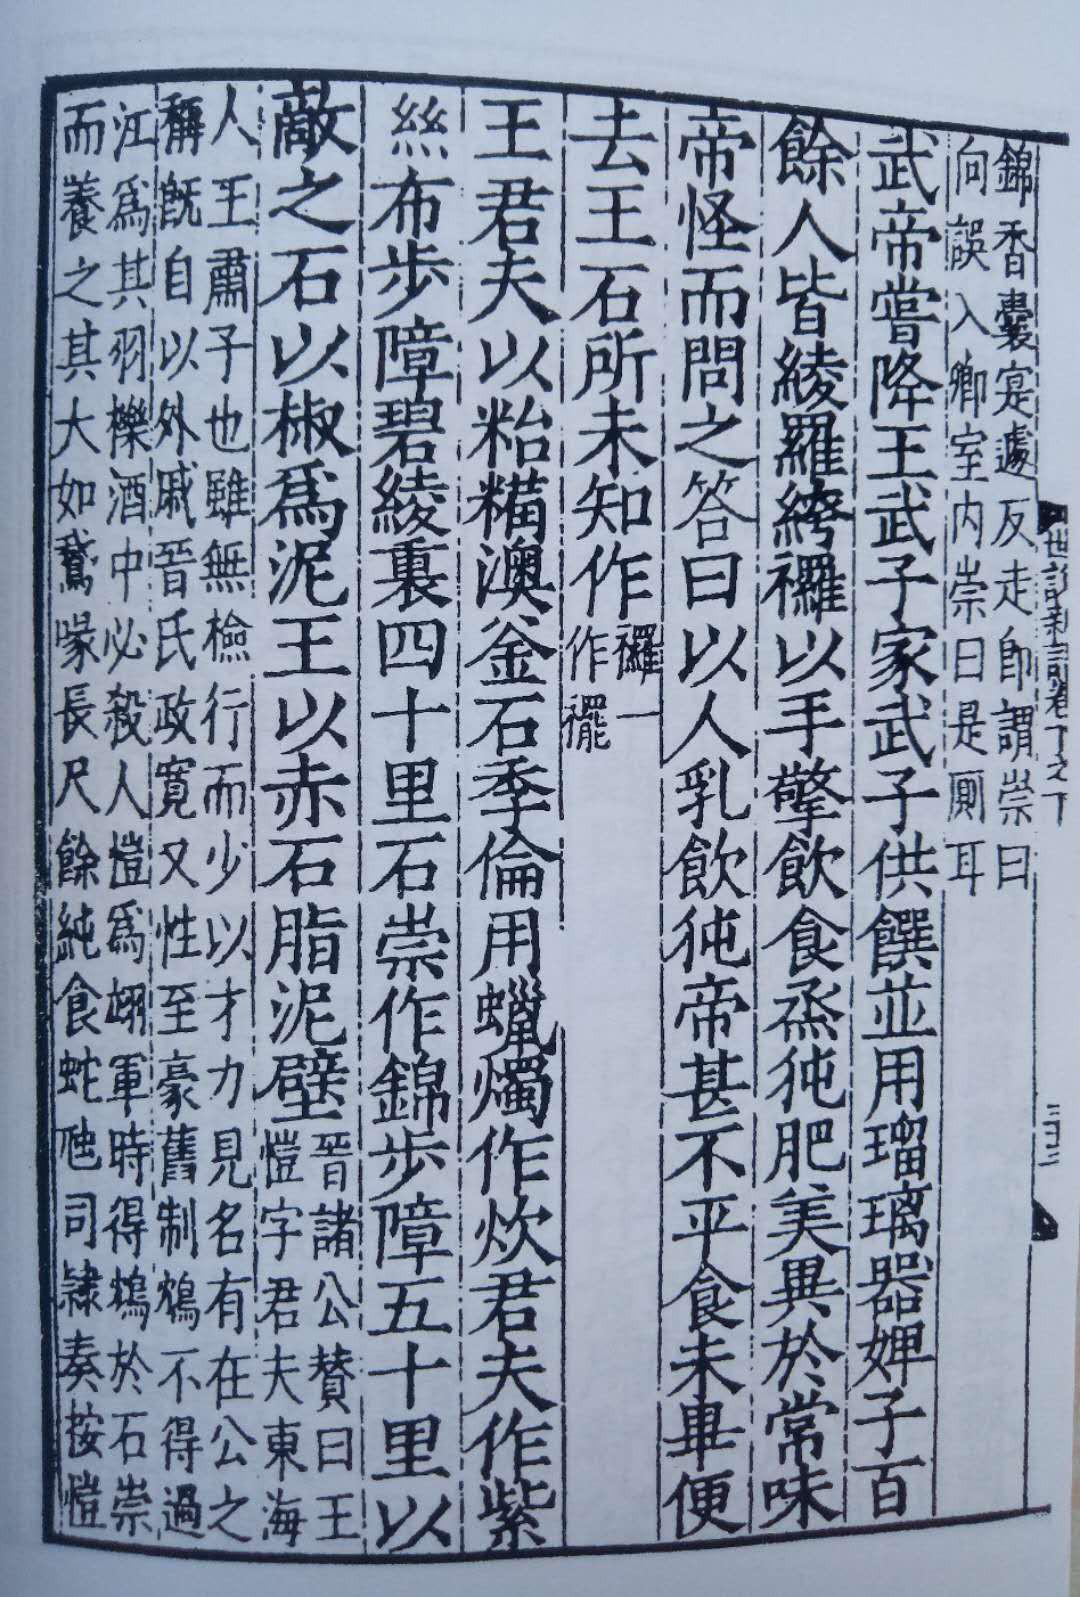 世說新語卷下之下
錦香囊寔遽反走即謂崇曰
向誤入卿室内崇曰是厠耳
武帝嘗降王武子家武子供饌並用瑠璃器婢子百
餘人皆綾羅絝𧟌以手擎飲食烝㹠肥美異於常味
帝怪而問之答曰以人乳飲㹠帝甚不平食未畢便
去王石所未知作
𧟌一
作襬
王君夫以𥹋糒澳釜石季倫用蠟燭作炊君夫作紫
絲布步障碧綾裏四十里石崇作錦步障五十里以
敵之石以椒爲泥王以赤石脂泥壁
晉諸公贊曰王
愷字君夫東海
人王肅子也雖無檢行而少以才力見名有在公之
稱旣自以外戚晉氏政寬又性至豪舊制鴆不得過
江爲其羽櫟酒中必殺人愷爲翊軍時得鴆於石崇
而養之其大如鵞喙長尺餘純食蛇虺司隸奏按愷